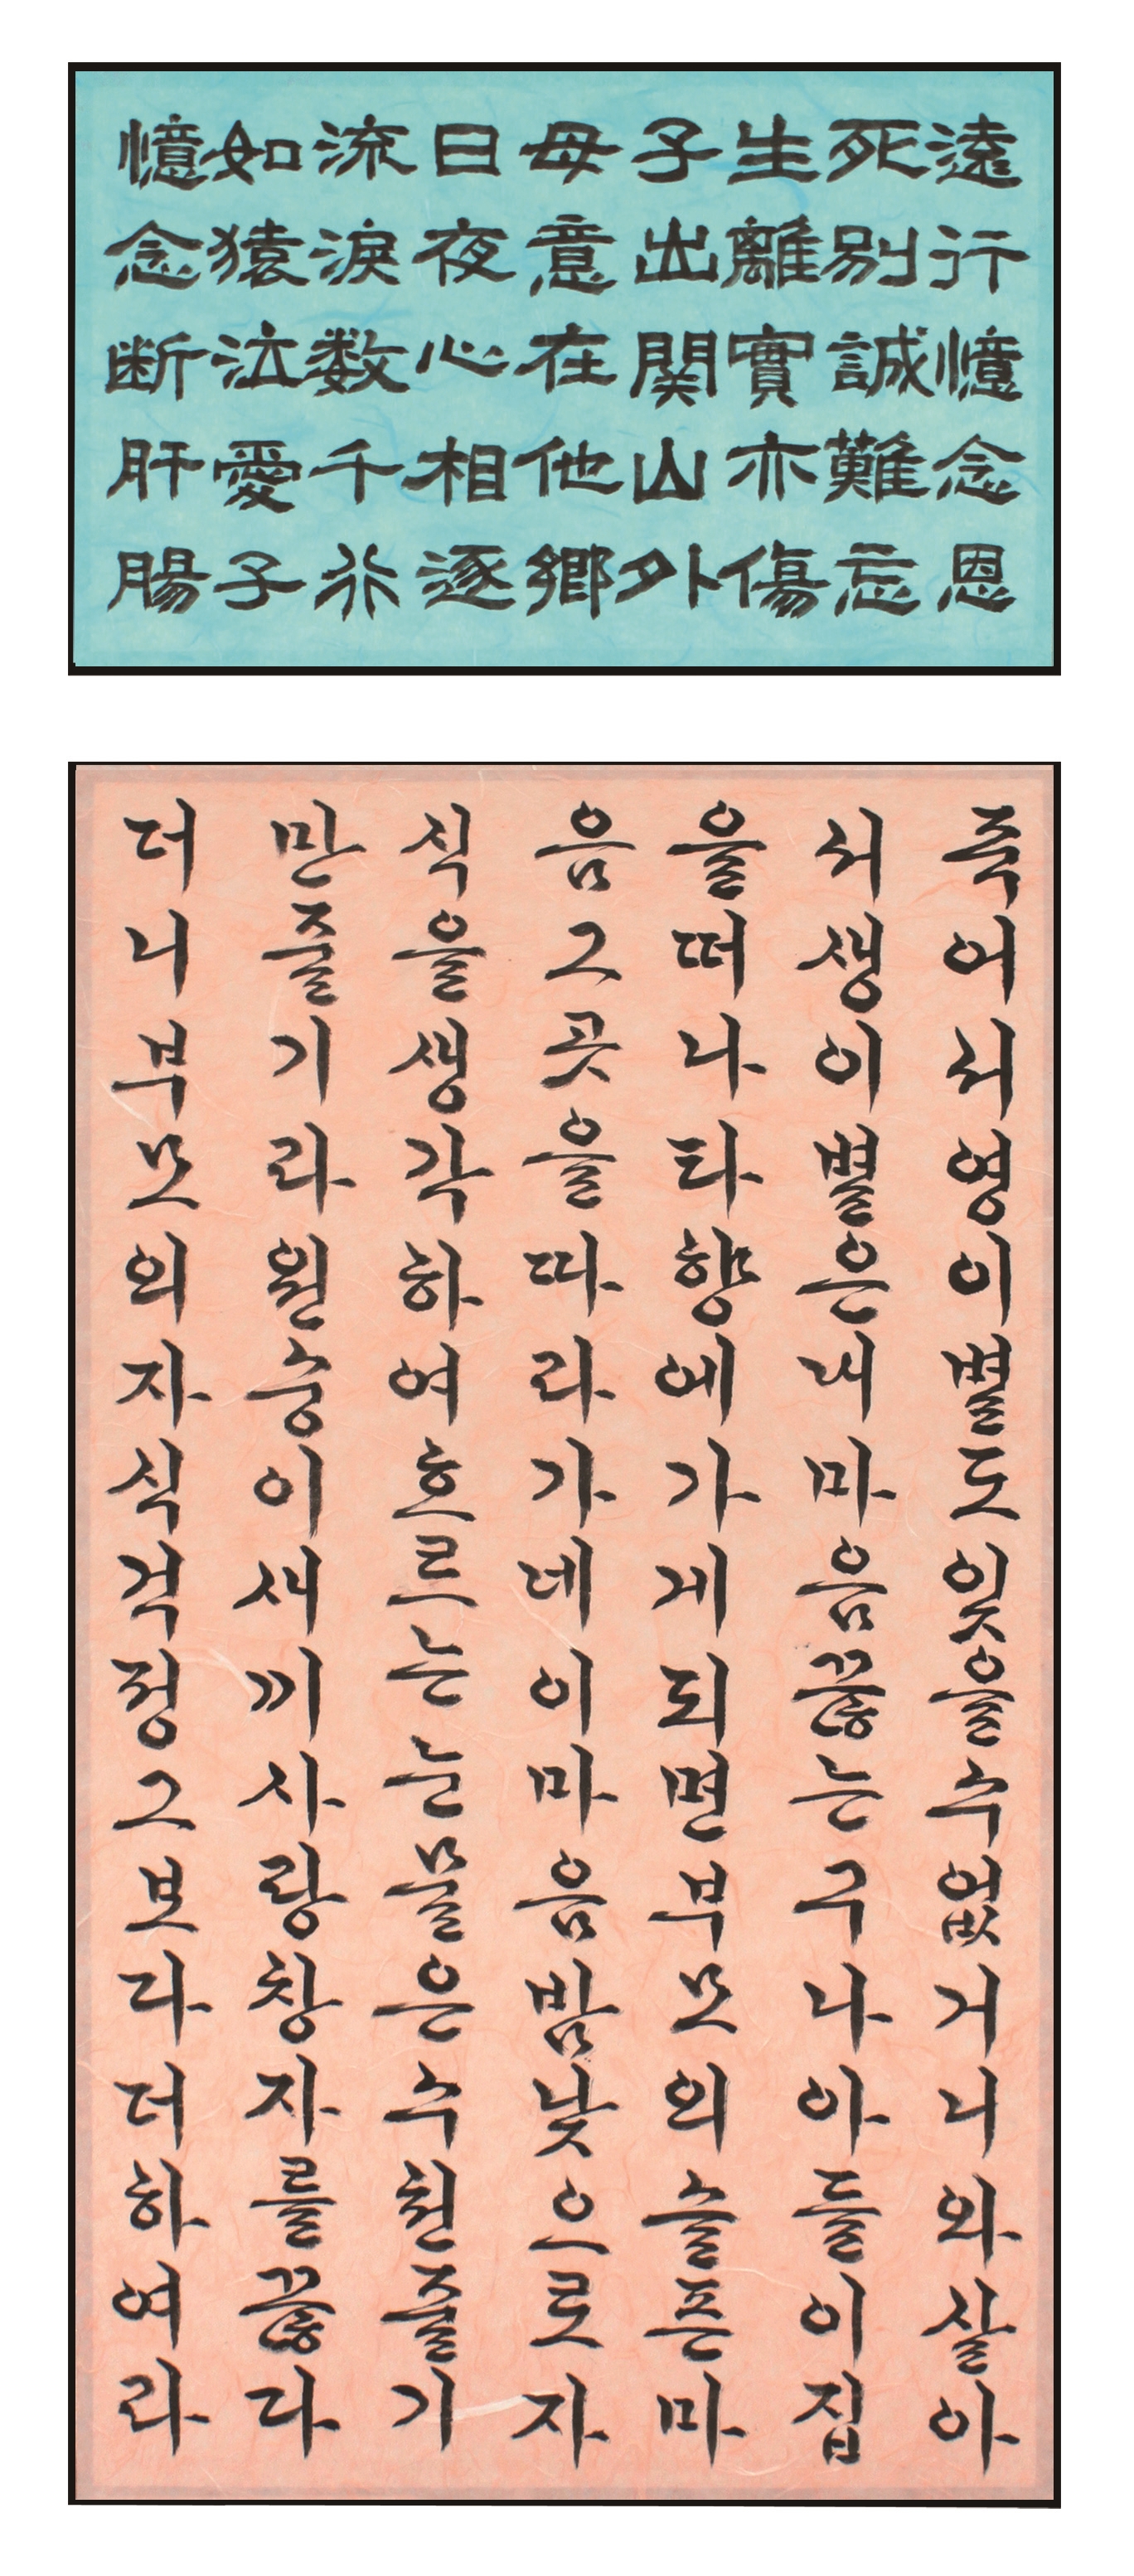 遠行憶念恩
死別誠難忘
生離實亦傷
子出関山外
母意在他鄕
日夜心相逐
流淚数千行
如猿泣愛子
憶念断肝腸
죽어서영이별도잊을수없거니와살아
서생이별은내마음끓는구나아들이집
을떠나타향에가게되면부모의슬픈마
음그곳을따라가데이마음밤낮으로자
식을생각하여흐르는눈물은수천줄기
만줄기라원숭이새끼사랑창자를끓다
더니부모의자식걱정그보다더하여라